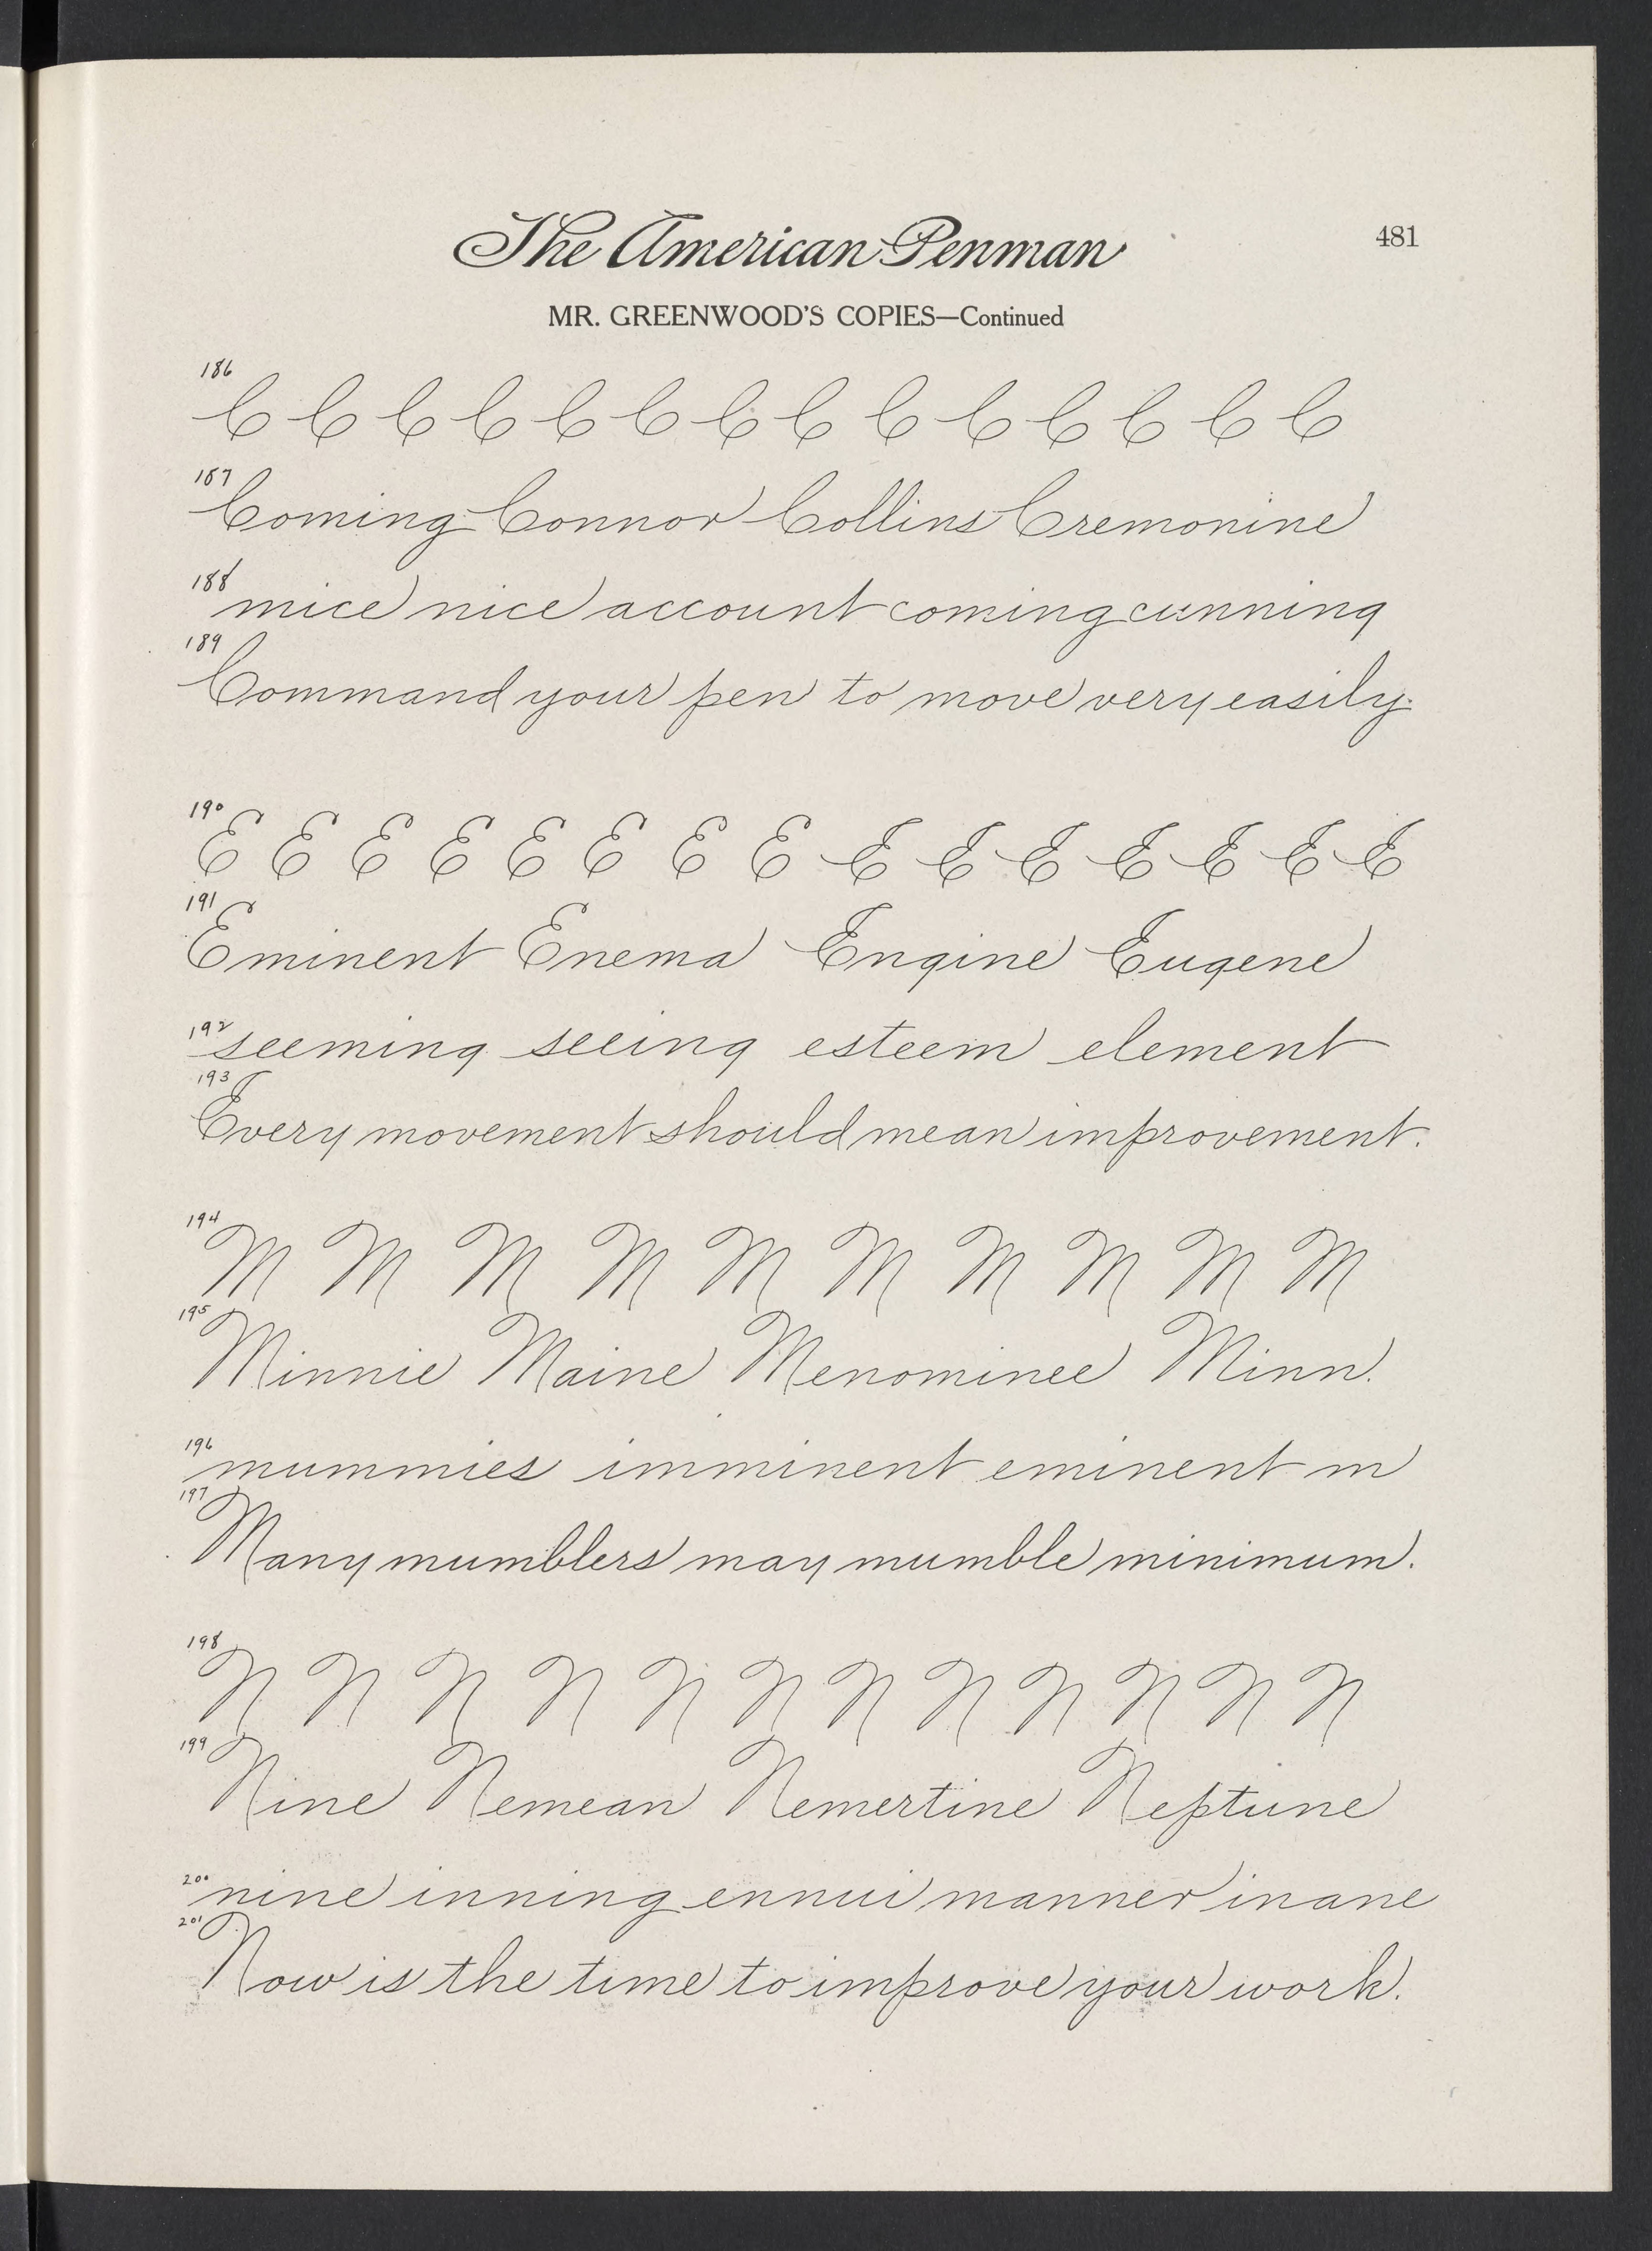 The American Penman
481
MR. GREENWOOD'S COPIES—Continued
186
C C C C C C C C C C C C C C
187
Coming Connor Collins Cremonine
188
mice nice account coming cunning
189
Command your pen to move very easily.
190
E E E E E E E E E E E E E E E
191
Eminent Enema Engine Eugene
192
seeming seeing esteem element
193
Every movement should mean improvement.
194
M M M M M M M M M M
195
Minnie Maine Menominee Minn.
196
mummies imminent eminent m
197
Many mumblers may mumble minimum.
198
N N N N N N N N N N N N
199
Nine Nemean Nemertine Neptune
200
nine inning ennui manner inane
201
Now is the time to improve your work.